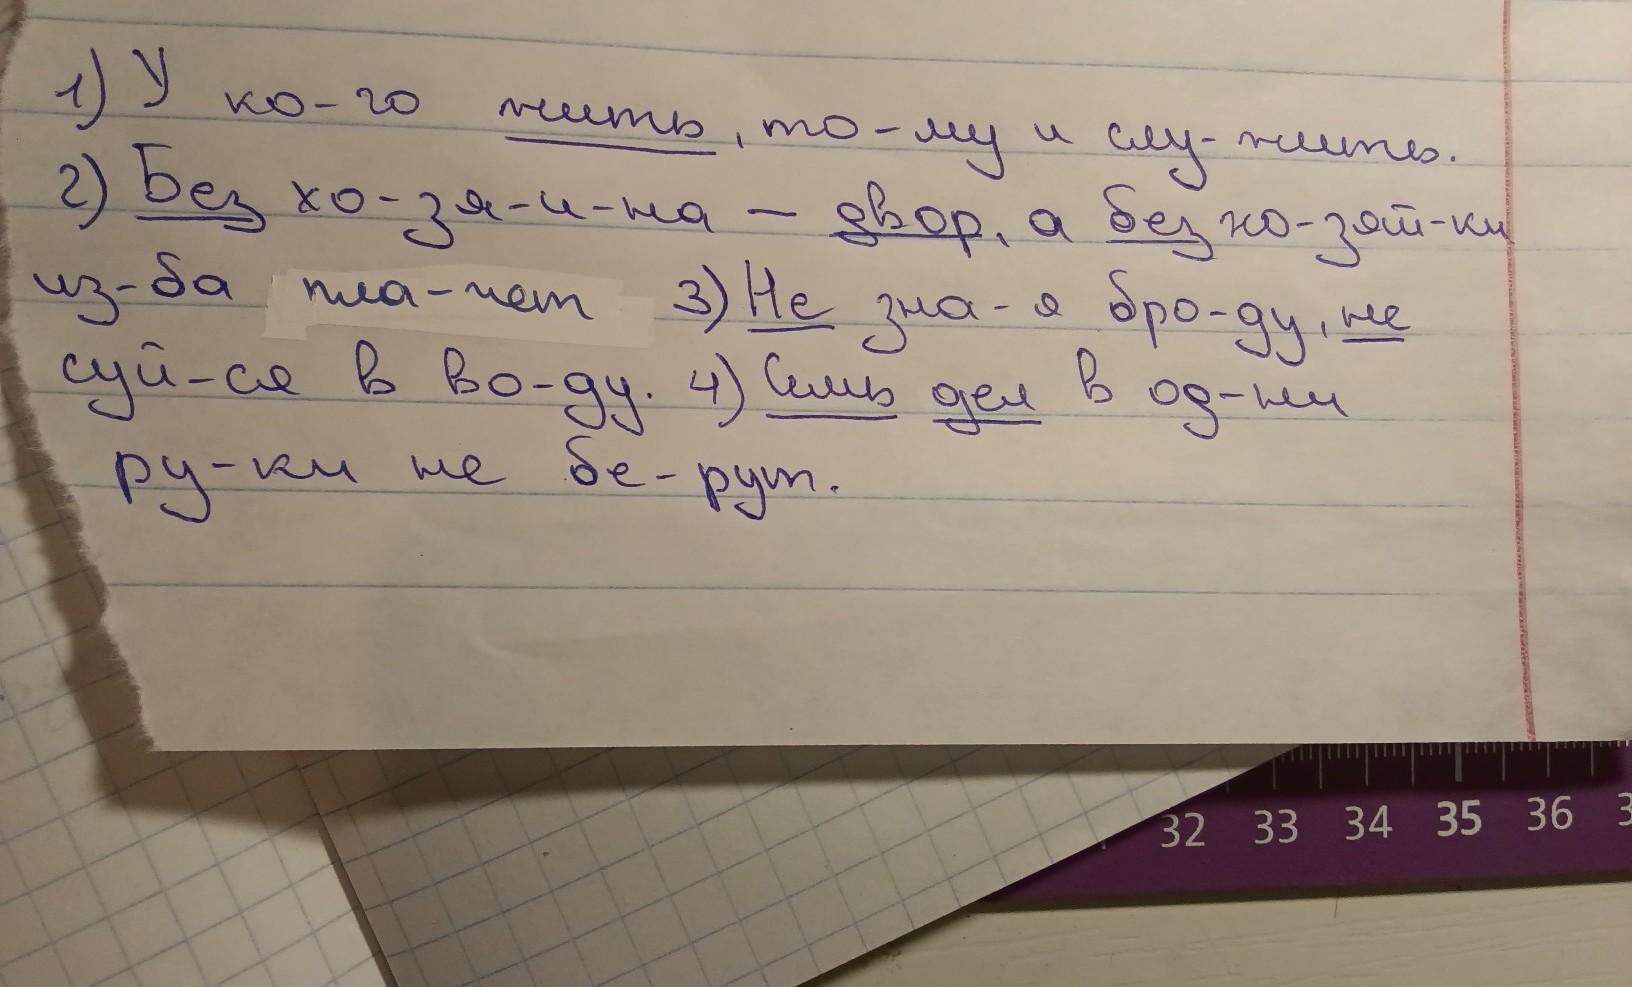 1) У ко-го жить, то-му и слу-жить.
2) Без хо-зя-и-на — двор, а без хо-зяй-ки
из-ба пла-чет 3) Не зна-я бро-ду, не
суй-ся в во-ду. 4) Семь дел в од-ни
ру-ки не бе-рут.
32 33 34 35 36 3